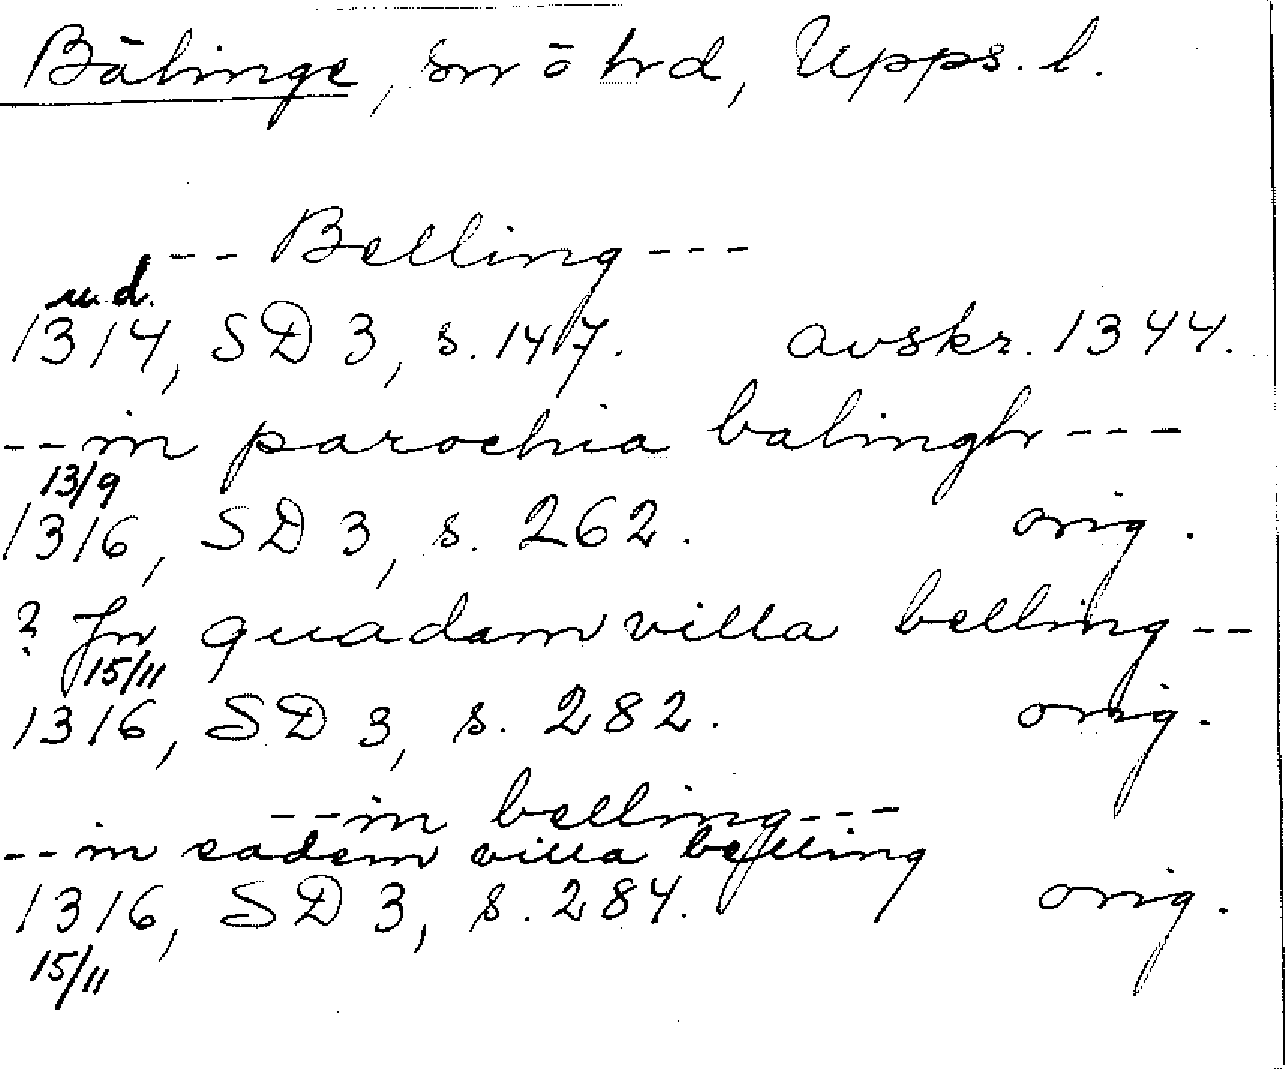 Bälinge, sn o hd, Upps. l.
--- Belling ---
u. d.
1314, SD 3, s. 147. avskr. 1344.
-- in parochia balingh ---
13/9
1316, SD 3, s. 262. orig.
? Jn quadam villa belling --
15/11
1316, SD 3, s. 282. orig.
-- in belling ---
-- in eadem villa belling
1316, SD 3, s. 284. orig.
15/11